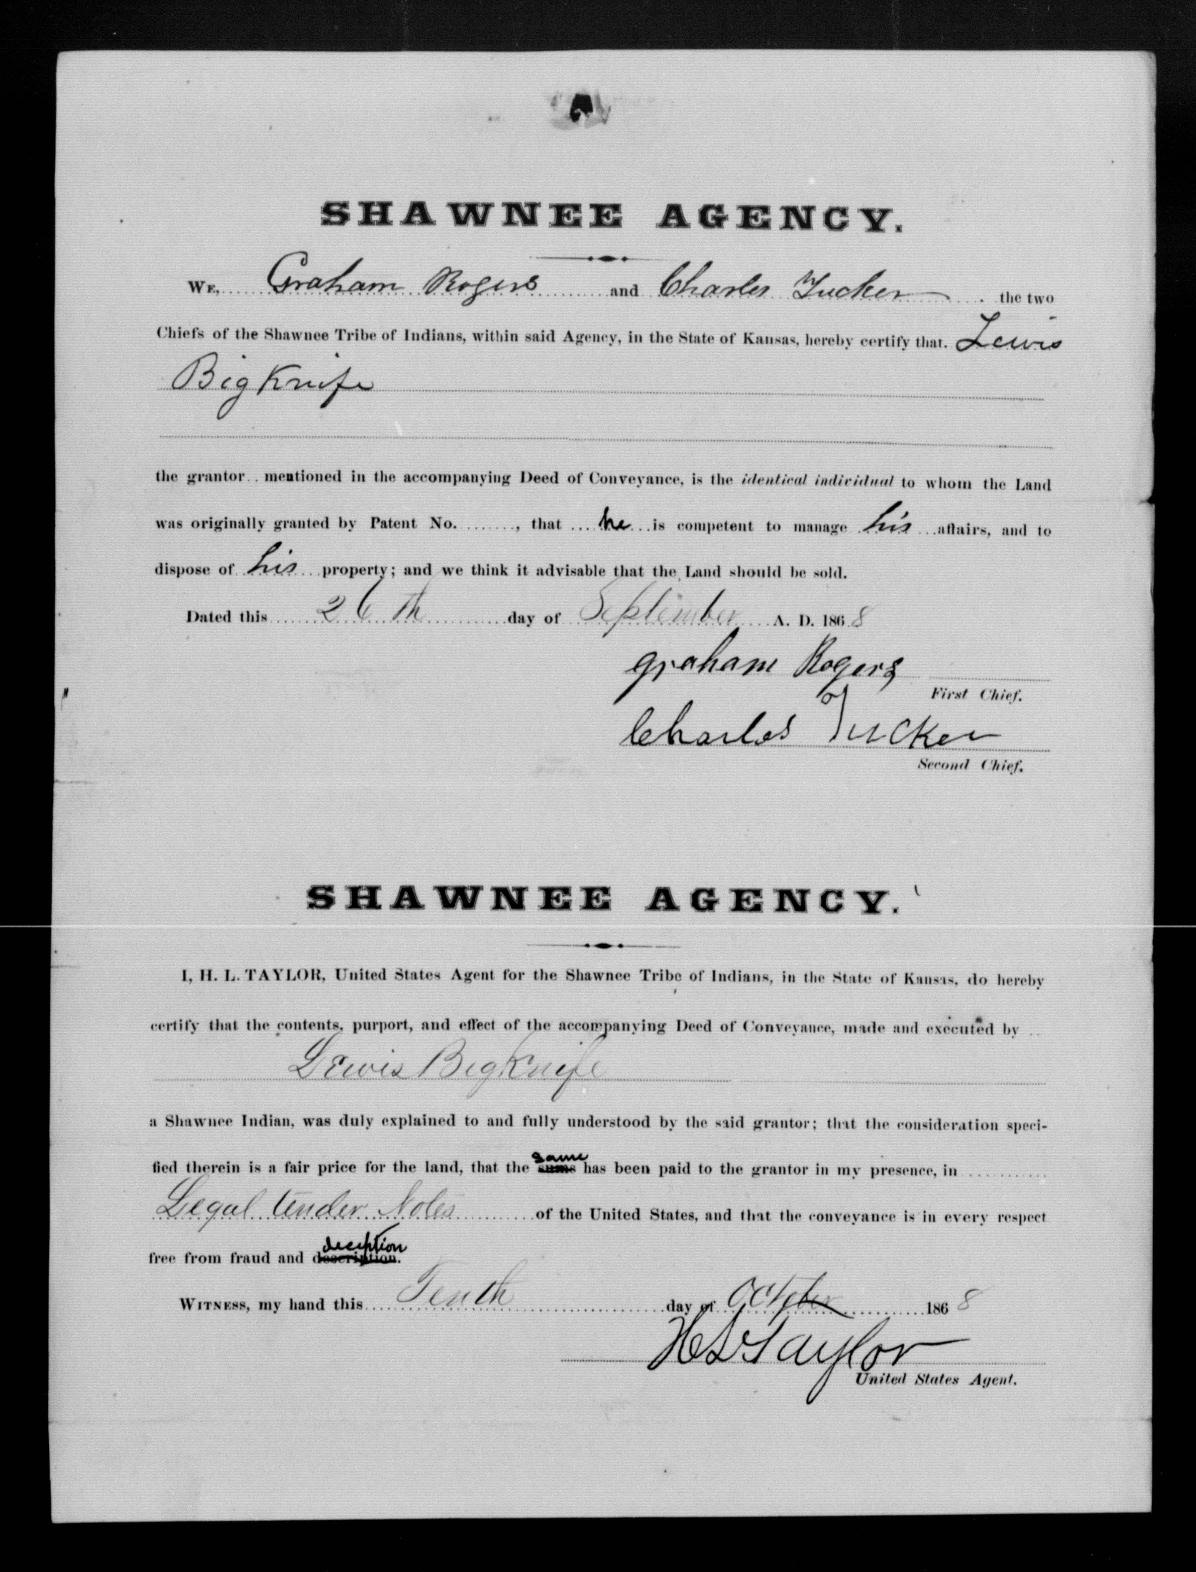 SHAWNEE AGENCY.
WE, Graham Rogers and Charles Tucker the two
Chiefs of the Shawnee Tribe of Indians, within said Agency, in the State of Kansas, hereby certify that Lewis
Big Knife
the grantor mentioned in the accompanying Deed of Conveyance, is the identical individual to whom the Land
was originally granted by Patent No. ......., that he is competent to manage his affairs, and to
dispose of his property; and we think it advisable that the Land should be sold.
Dated this 26th day of September A. D. 1868
Graham Rogers
First Chief.
Charles Tucker
Second Chief.
SHAWNEE AGENCY.
I, H. L. TAYLOR, United States Agent for the Shawnee Tribe of Indians, in the State of Kansas, do hereby
certify that the contents, purport, and effect of the accompanying Deed of Conveyance, made and executed by
Lewis Big Knife
a Shawnee Indian, was duly explained to and fully understood by the said grantor; that the consideration speci-
fied therein is a fair price for the land, that the same sums has been paid to the grantor in my presence, in
Legal tender Notes of the United States, and that the conveyance is in every respect
free from fraud and deception description.
WITNESS, my hand this Tenth day of October 1868
H L Taylor
United States Agent.